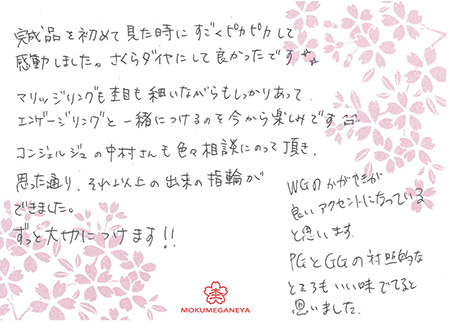 完成品を初めて見た時にすごくピカピカして
感動しました。さくらダイヤにして良かったです
マリッジリングも杢目も細いながらもしっかりあって、
エンゲージリングと一緒につけるのを今から楽しみです
コンシェルジュの中村さんも色々相談にのって頂き、
思った通り、それ以上の出来の指輪が
できました。
ずっと大切につけます!!
WGのかがやきが
良いアクセントになっている
と思います。
PGとGGの対照的な
ところもいい味でてると
思いました。
MOKUMEGANEYA